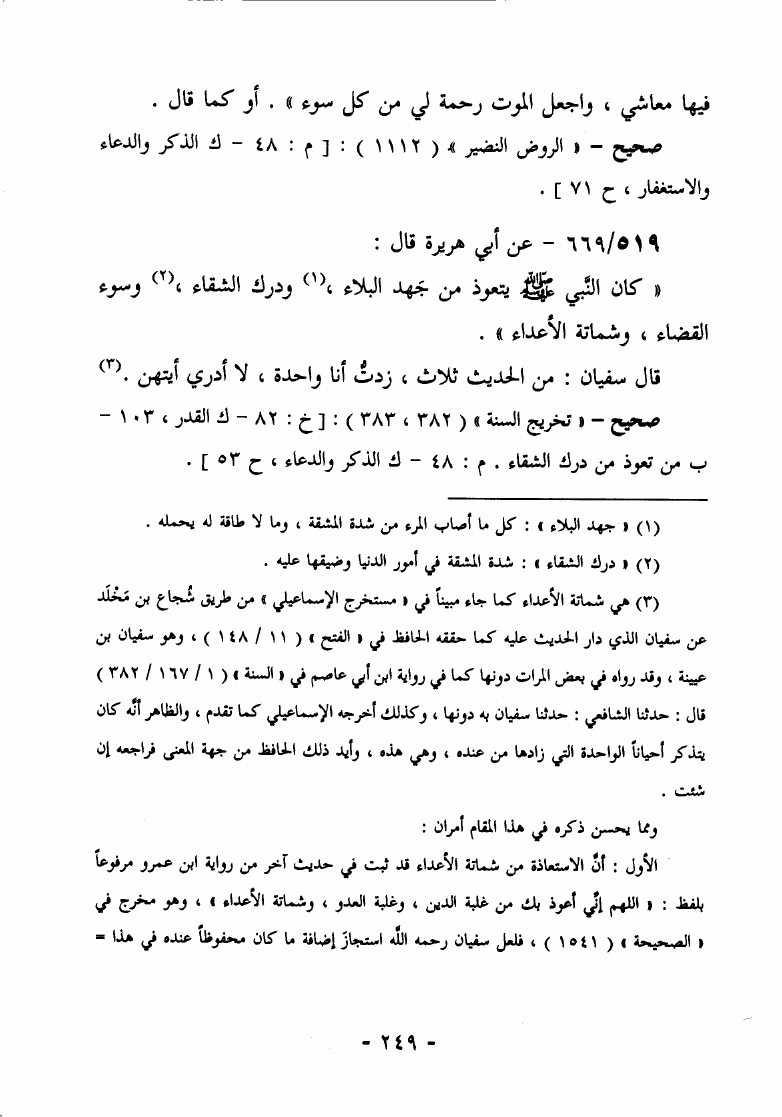 فيها معاشي ، واجعل الموت رحمة لي من كل سوء » . أو كما قال .
صحيح – « الروض النضير » ( ١١١٢ ) : [ م : ٤٨ – ك الذكر والدعاء
والاستغفار ، ح ٧١ ] .
٦٦٩/٥١٩ – عن أبي هريرة قال :
« كان النَّبي ﷺ يتعوذ من جَهد البلاء ،(١) ودرك الشقاء ،(٢) وسوء
القضاء ، وشماتة الأعداء » .
قال سفيان : من الحديث ثلاث ، زدتُّ أنا واحدة ، لا أدري أيتهن .(٣)
صحيح – « تخريج السنة » ( ٣٨٢ ، ٣٨٣ ) : [ خ : ٨٢ – ك القدر ، ١٠٣ –
ب من تعوذ من درك الشقاء . م : ٤٨ – ك الذكر والدعاء ، ح ٥٣ ] .
(١) « جهد البلاء » : كل ما أصاب المرء من شدة المشقة ، وما لا طاقة له يحمله .
(٢) « درك الشقاء » : شدة المشقة في أمور الدنيا وضيقها عليه .
(٣) هي شماتة الأعداء كما جاء مبيناً في « مستخرج الإسماعيلي » من طريق شُجاع بن مَخْلَد
عن سفيان الذي دار الحديث عليه كما حققه الحافظ في « الفتح » ( ١١ / ١٤٨ ) ، وهو سفيان بن
عيينة ، وقد رواه في بعض المرات دونها كما في رواية ابن أبي عاصم في « السنة » ( ١ / ١٦٧ / ٣٨٢ )
قال : حدثنا الشافعي : حدثنا سفيان به دونها ، وكذلك أخرجه الإسماعيلي كما تقدم ، والظاهر أنَّه كان
يتذكر أحياناً الواحدة التي زادها من عنده ، وهي هذه ، وأيد ذلك الحافظ من جهة المعنى فراجعه إن
شئت .
ومما يحسن ذكره في هذا المقام أمران :
الأول : أنَّ الاستعاذة من شماتة الأعداء قد ثبت في حديث آخر من رواية ابن عمرو مرفوعاً
بلفظ : « اللهم إنِّي أعوذ بك من غلبة الدين ، وغلبة العدو ، وشماتة الأعداء » ، وهو مخرج في
« الصحيحة » ( ١٥٤١ ) ، فلعل سفيان رحمه الله استجازَ إضافة ما كان محفوظاً عنده في هذا =
- ٢٤٩ -